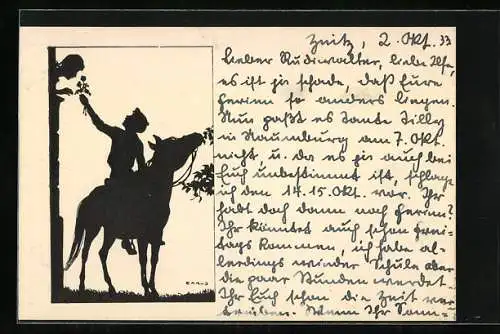 Zeitz, 2. Okt. 33
Lieber Rudiwalter, liebe Ilse,
es ist zu schade, daß Eure
Ferien so anders liegen.
Nun paßt es Tante Tilly
in Naumburg am 7. Okt.
nicht, u. da es ja auch bei
Euch unbestimmt ist, schlage
ich den 14. 15. Okt. vor. Ihr
habt doch dann noch Ferien?
Ihr könntet auch schon Frei-
tags kommen, ich habe al-
lerdings wieder Schule aber
die paar Stunden werdet
Ihr Euch schon die Zeit ver-
treiben. Wenn Ihr Sonn-